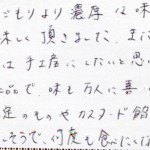 ごもりより濃厚な味
味しく頂きました。また
は手土産にしたいと思い
品で、味も万人に喜
定のものやカスタード餡
しそうで、何度も食べたくな